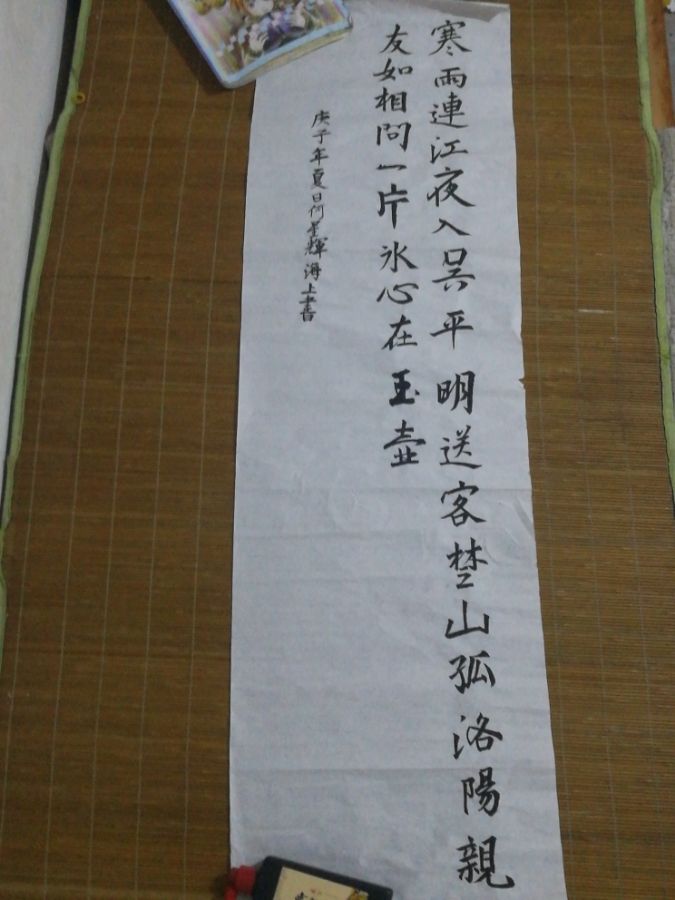 寒雨連江夜入吳平明送客楚山孤洛陽親
友如相問一片冰心在玉壺
庚子年夏日何星輝海上書